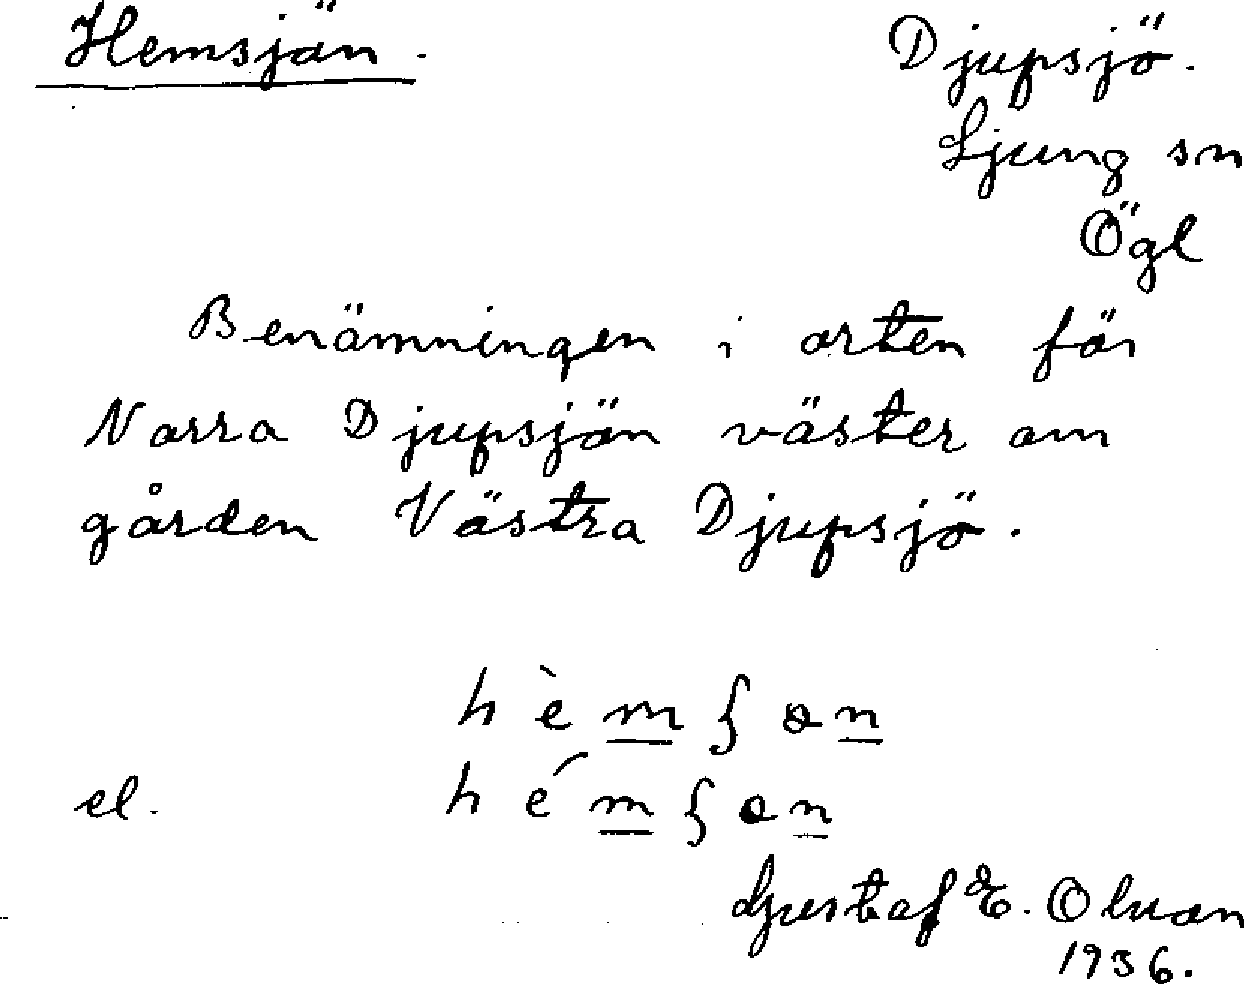 Hemsjön.
Djupsjö.
Ljung sn
Ögl
Benämningen i orten för
Norra Djupsjön väster om
gården Västra Djupsjö.
hèm
el. hém
Gustaf E.
1936.